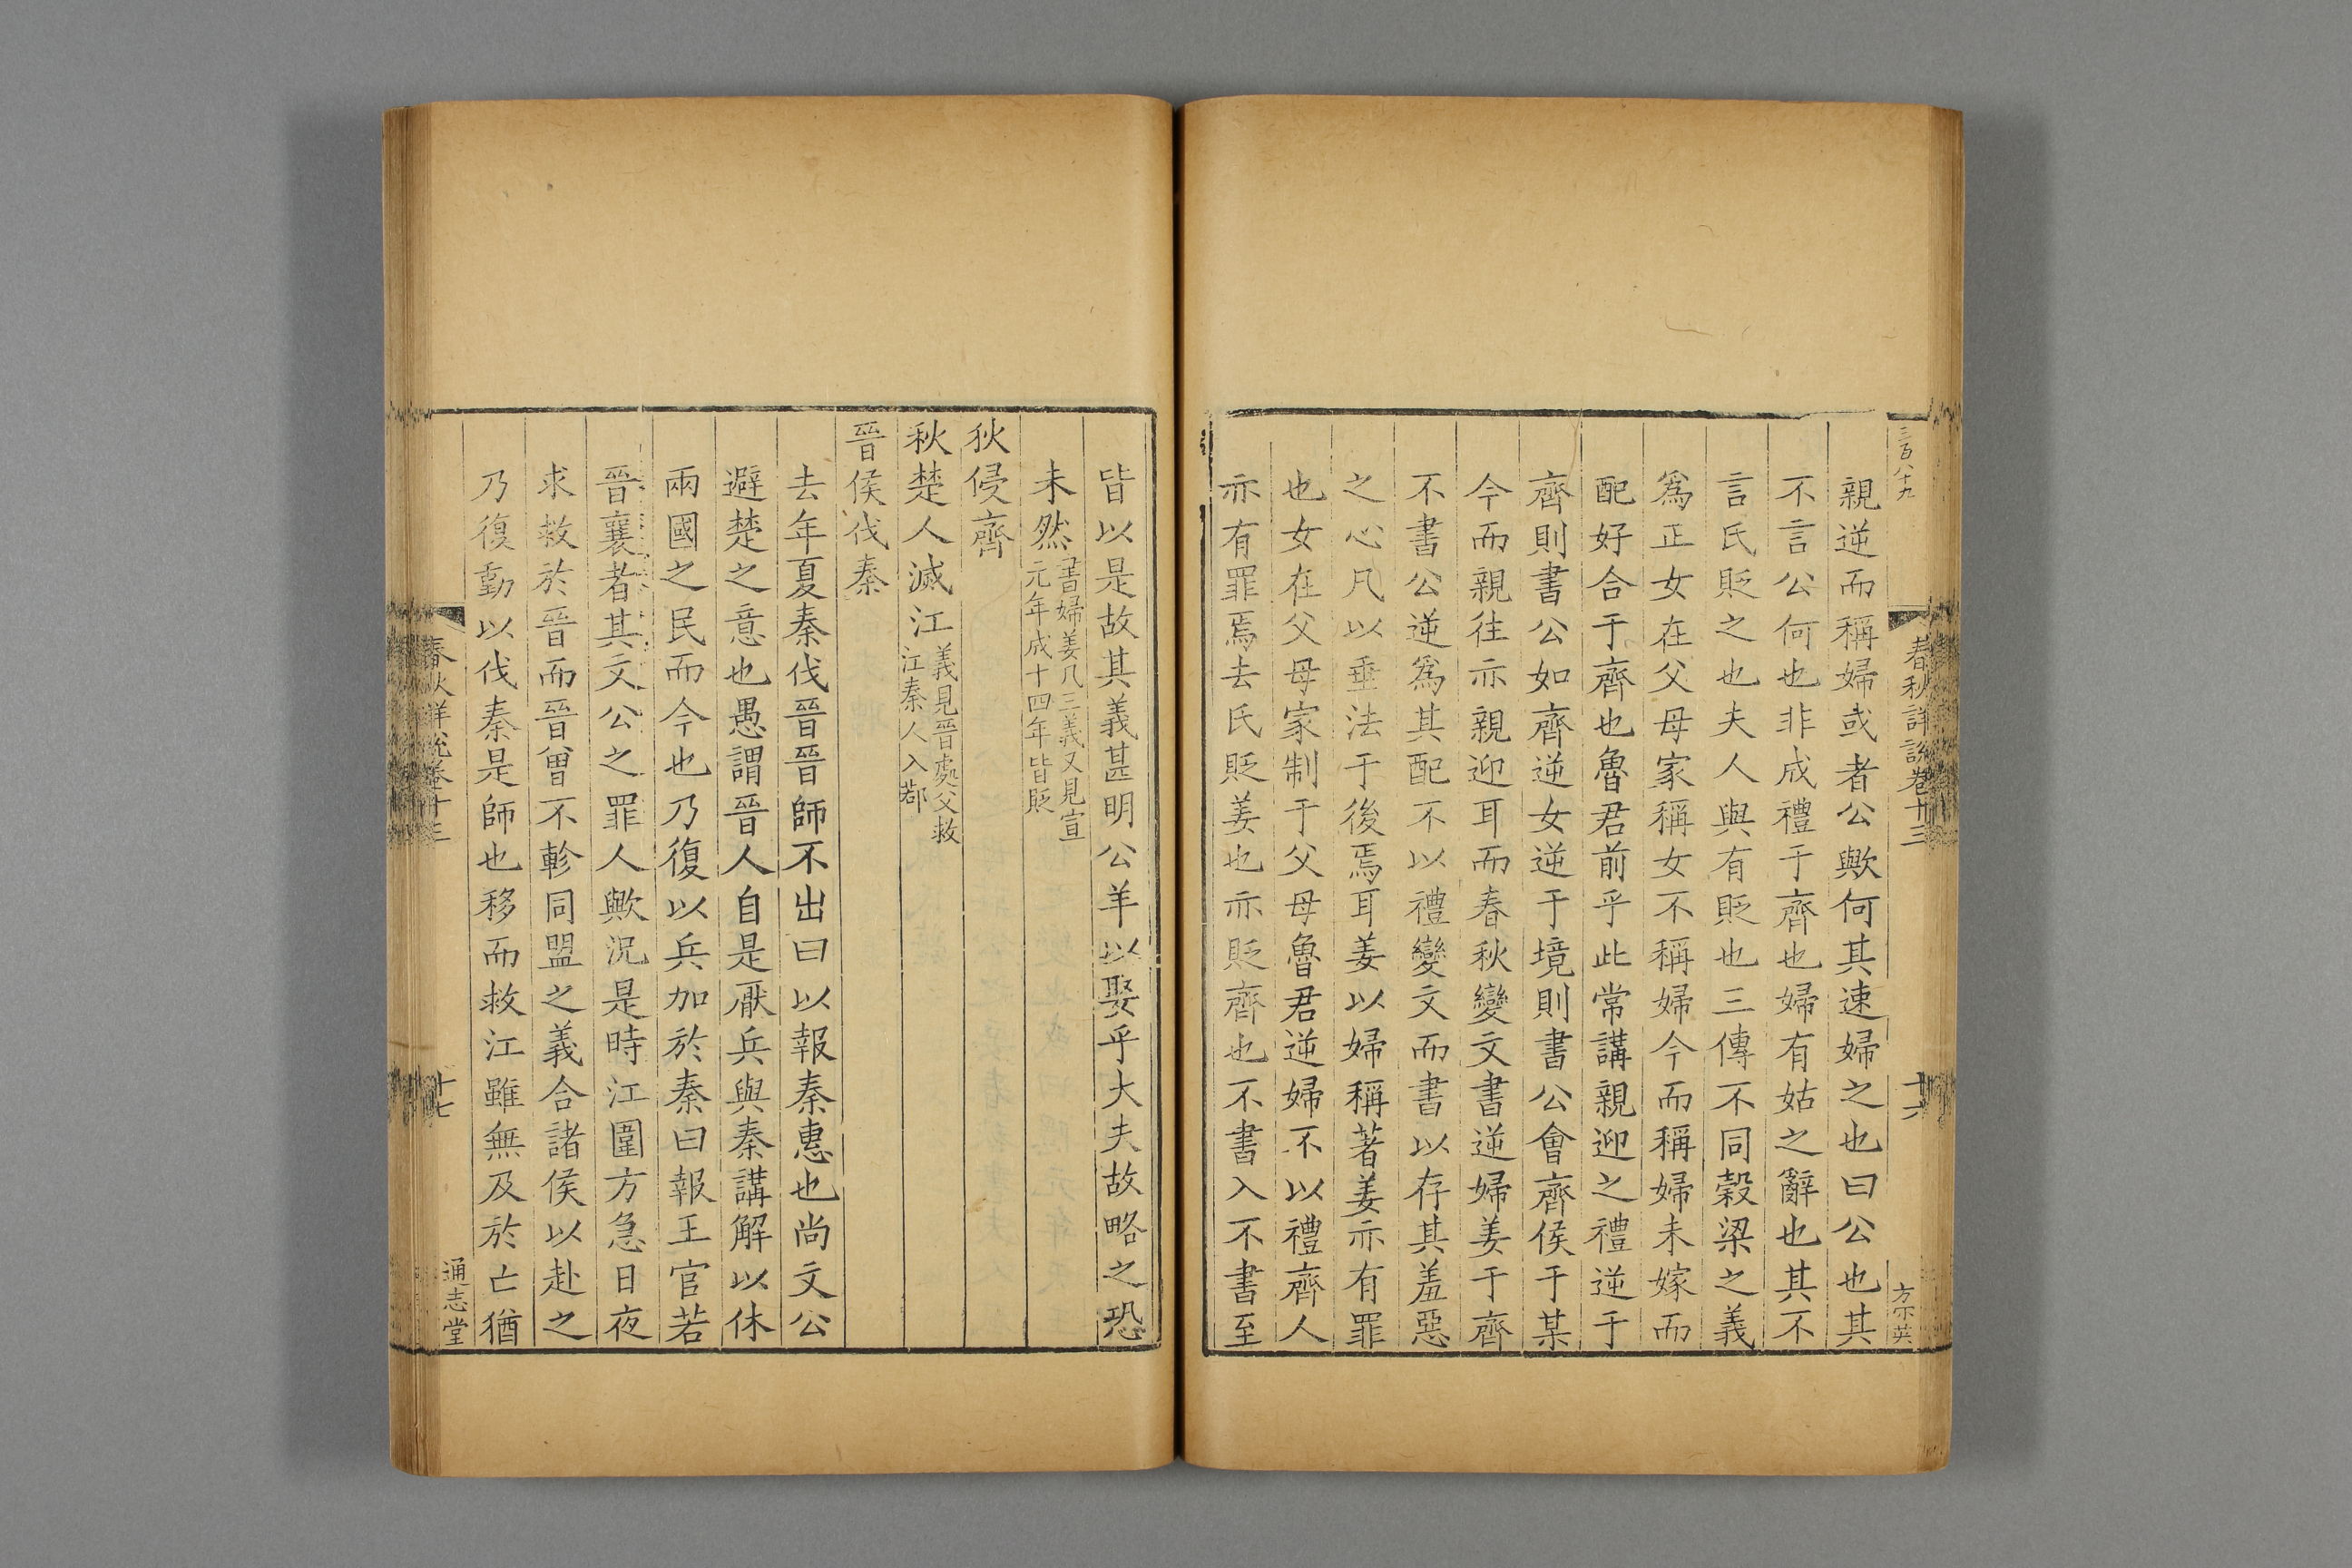 三百八十九
春秋詳說卷十三
十六
方宗英
親逆而稱婦或者公歟何其速婦之也曰公也其
不言公何也非成禮于齊也婦有姑之辭也其不
言氏貶之也夫人與有貶也三傳不同穀梁之義
爲正女在父母家稱女不稱婦今而稱婦未嫁而
配好合于齊也魯君前乎此常講親迎之禮逆于
齊則書公如齊逆女逆于境則書公會齊侯于某
今而親往亦親迎耳而春秋變文書逆婦姜于齊
不書公逆爲其配不以禮變文而書以存其羞惡
之心凡以垂法于後焉耳姜以婦稱著姜亦有罪
也女在父母家制于父母魯君逆婦不以禮齊人
亦有罪焉去氏貶姜也亦貶齊也不書入不書至
皆以是故其義甚明公羊以娶乎大夫故略之恐
未然書婦姜凡三義又見宣元年成十四年皆貶
狄侵齊
秋楚人滅江義見晉處父救江秦人入鄀
晉侯伐秦
去年夏秦伐晉晉師不出曰以報秦惠也尚文公
避楚之意也愚謂晉人自是厭兵與秦講解以休
兩國之民而今也乃復以兵加於秦曰報王官若
晉襄者其文公之罪人歟況是時江圍方急日夜
求救於晉而晉曾不軫同盟之義合諸侯以赴之
乃復勤以伐秦是師也移而救江雖無及於亡猶
春秋詳說卷十三
十七
通志堂